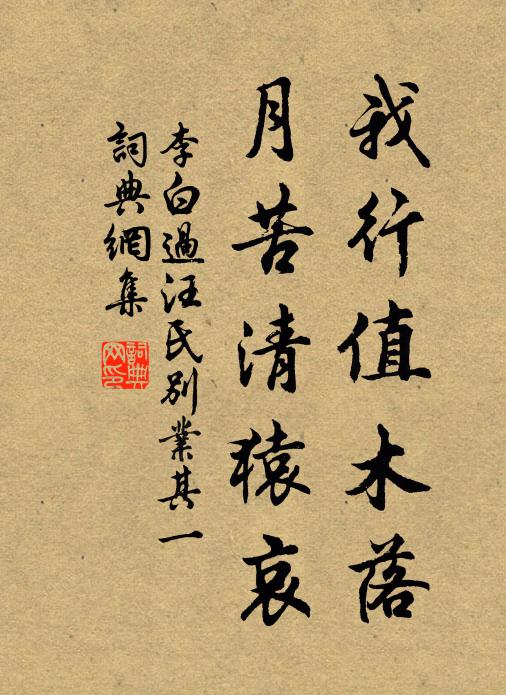 我行值木落
月苦清猿哀
李白過汪氏別業其一
詞典網集
詞典
网印